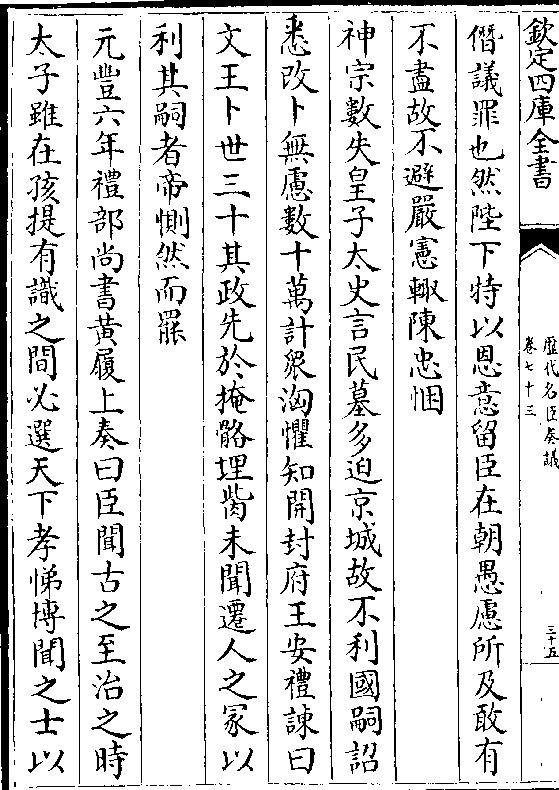 欽定四庫全書
歷代名臣奏議
卷七十三
三十五
僭議罪也然陛下特以恩意留臣在朝愚慮所及敢有
不盡故不避嚴憲輙陳忠悃
神宗數失皇子太史言民墓多迫京城故不利國嗣詔
悉改卜無慮數十萬計衆洶懼知開封府王安禮諫曰
文王卜世三十其政先於掩骼埋胔未聞遷人之冢以
利其嗣者帝惻然而罷
元豐六年禮部尚書黄履上奏曰臣聞古之至治之時
太子雖在孩提有識之間必選天下孝悌博聞之士以